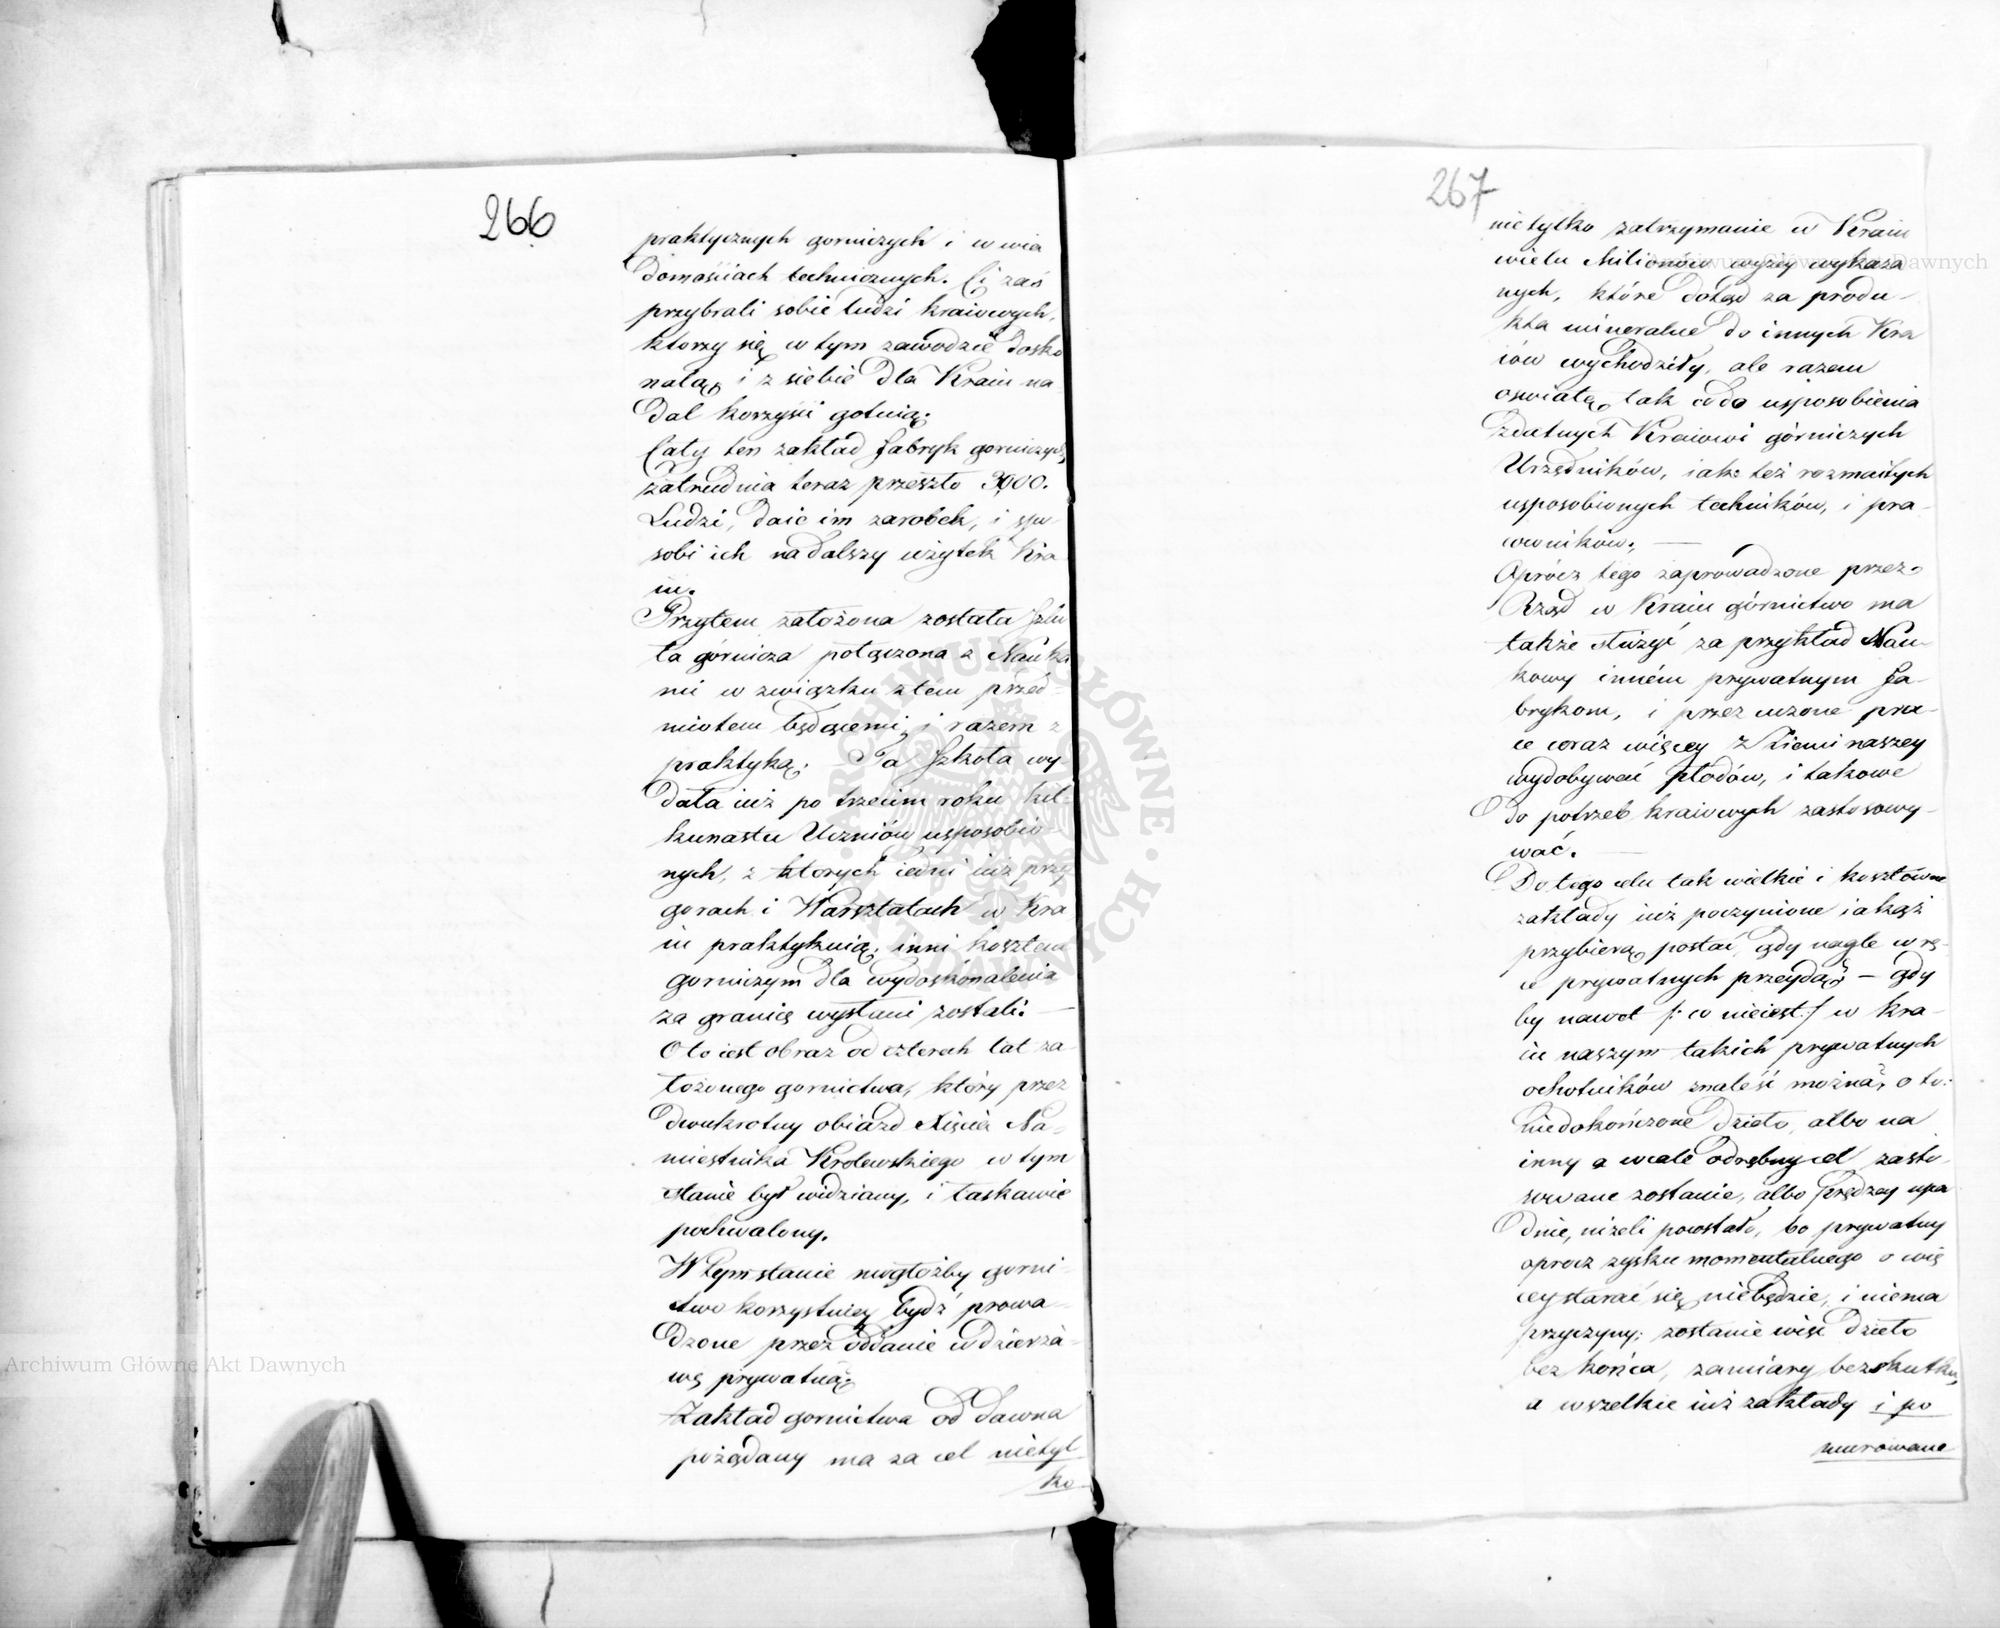 266
praktycznych gorniczych i w wia
domościach technicznych. Ci zaś
przybrali sobie ludzi kraiowych,
ktorzy się w tym zawodzie dosko
nalą, i z siebie dla Kraiu na
dal korzyści gotuią.
Cały ten zakład fabryk gorniczych,
zatrudnia teraz przeszło 3000.
Ludzi, daie im zarobek, i spo-
sobi ich na dalszy użytek Kra
iu.
Przytem założona została Szko
ła górnicza połączona z Nauka
mi w związku z tém przed-
miotem będącemi, i razem z
praktyką. Ta Szkoła wy-
dała iuż po trzecim roku kil-
kunastu Uczniów usposobio-
nych, z ktorych iedni iuż przy
gorach i Warsztatach w Kra
iu praktykuią, inni kosztem
gorniczym dla wydoskonalenia
za granicę wysłani zostali. —
Oto iest obraz od czterech lat za-
łożonego gornictwa, który przez
dwukrotny obiazd Xięcia Na-
miestnika Krolewskiego w tym
stanie był widziany, i łaskawie
pochwalony.
W tym stanie mogłożby gorni-
ctwo korzystniey bydź prowa-
dzone przez oddanie w dzierża-
wę prywatną.
Zakład gornictwa od dawna
pożądany ma za cel nietyl
ko
267
nietylko zatrzymanie w Kraiu
wielu Milionów wyżey wykaza
nych, które dotąd za produ-
kta mineralne do innych Kra
iów wychodziły, ale razem
oswiatę, tak co do usposobienia
zdatnych Kraiowi górniczych
Urzędników, iak też rozmaitych
usposobionych techników, i pra-
cowników. —
Oprócz tego zaprowadzone przez
Rząd w Kraiu górnictwo ma
także służyć za przykład Nau-
kowy inném prywatnym fa-
brykom, i przez uczone pra-
ce coraz więcey z Ziemi naszey
wydobywać płodów, i takowe
do potrzeb kraiowych zastosowy-
wać. —
Do tego celu tak wielkie i kosztowne
zakłady iuż poczynione iakąż
przybierą postać, gdy nagle w rę-
ce prywatnych przeydą? — gdy
by nawet /: co nieiest :/ w kra-
iu naszym takich prywatnych
ochotników znaleść można, o to:
niedokończone dzieło, albo na
inny a wcale odrębny cel zasto-
sowane zostanie, albo prędzey upa
dnie, niżeli powstało, bo prywatny
oprocz zysku momentalnego o wię
cey starać się niebędzie, i niema
przyczyny; zostanie więc dzieło
bez końca, zamiary bez skutku,
a wszelkie iuż zakłady i po
murowane
Archiwum Główne Akt Dawnych
Archiwum Główne Akt Dawnych
ARCHIWUM GŁÓWNE AKT DAWNYCH